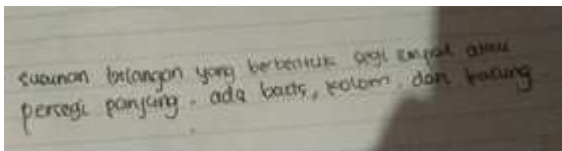 susunan bilangan yang berbentuk segi empat atau
persegi panjang, ada baris, kolom, dan kurung